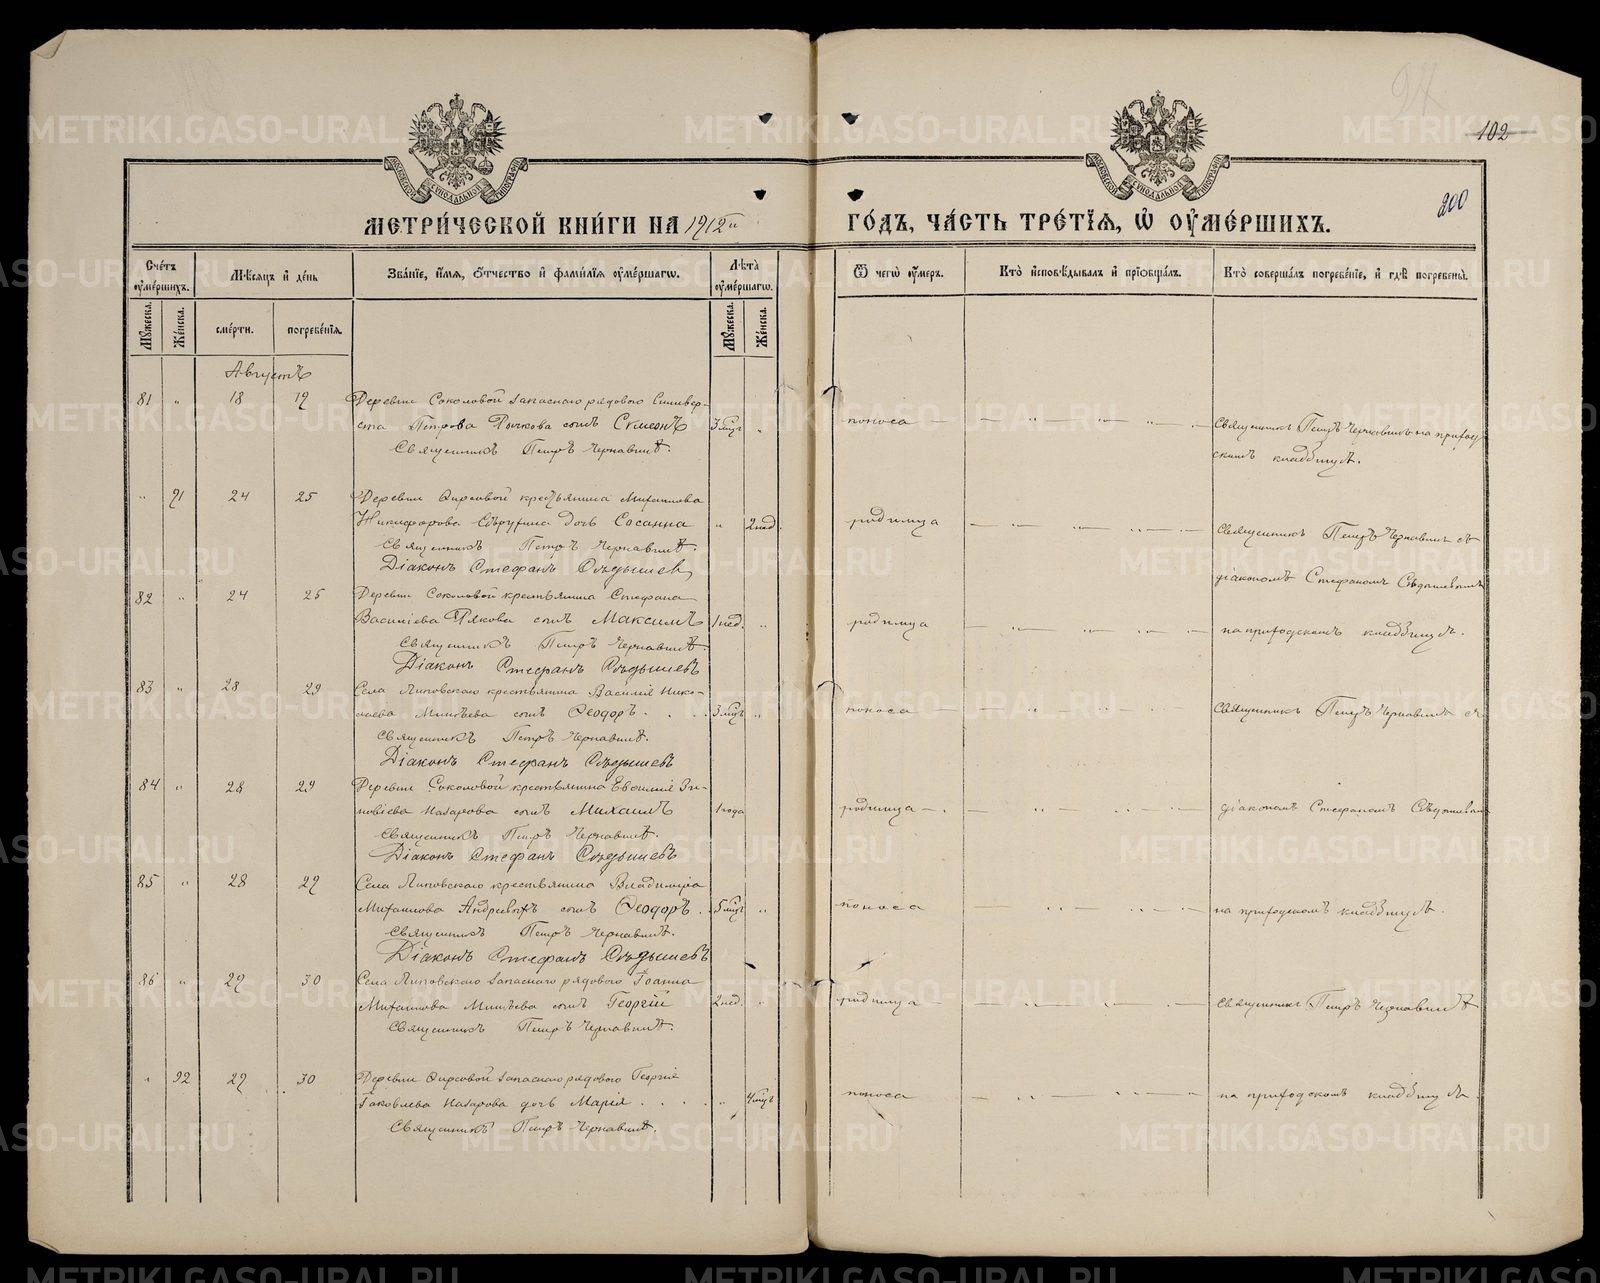 102
200
МЕТРИ́ЧЕСКОЙ КНИ́ГИ НА 1912й ГО́ДЪ, ЧА́СТЬ ТРЕ́ТІЯ, Ѡ҆ ОУ҆МЕ́РШИХЪ.
Сче́тъ оу҆ме́ршихъ.
Мѣ́сяцъ и҆ де́нь
Зва́ніе, и҆́мя, ѻ҆́тчество и҆ фами́лія оу҆ме́ршагѡ.
Лѣ́та оу҆ме́ршагѡ.
Ѿ чегѡ̀ оу҆́меръ.
Кто̀ и҆сповѣ́дывалъ и҆ пріѡбща́лъ.
Кто̀ соверша́лъ погребе́ніе, и҆ гдѣ̀ погребены̀.
Мꙋ́жеска.
Же́нска.
сме́рти.
погребе́нія.
Мꙋ́жеска.
Же́нска.
Августъ
81 " 18 19 Деревни Соколовой запаснаго рядового Сильвер-
ста Петрова Рычкова сынъ Сѵмеонъ 3 мѣс "
Священникъ Петръ Чернавинъ.
поноса — — " — " — Священникъ Петръ Чернавинъ на приход
скомъ кладбищѣ.
" 91 24 25 Деревни Фирсовой крестьянина Михаила
Никифорова дочь Сосанна " 2 нед.
Священникъ Петръ Чернавинъ.
Діаконъ Стефанъ Сѣдышев
родимца — " — " — " — Священникъ Петръ Чернавинъ съ
діакономъ Стефаномъ Сѣдышевымъ
82 " 24 25 Деревни Соколовой крестьянина Стефана
Василіева сынъ Максимъ 1 нед. "
Священникъ Петръ Чернавинъ.
Діаконъ Стефанъ Сѣдышевъ
родимца — " — " — " — на приходскомъ кладбищѣ.
83 " 28 29 Села Липовскаго крестьянина Василія Нико-
лаева Минѣева сынъ Ѳеодоръ 3 мѣс "
Священникъ Петръ Чернавинъ.
Діаконъ Стефанъ Сѣдышевъ
поноса — — " — " — Священникъ Петръ Чернавинъ съ
84 " 28 29 Деревни Соколовой крестьянина Евѳимія Зи-
новіева Назарова сынъ Михаилъ 1 года
Священникъ Петръ Чернавинъ.
Діаконъ Стефанъ Сѣдышевъ
родимца — . — " — " — діакономъ Стефаномъ Сѣдышевым
85 " 28 29 Села Липовскаго крестьянина Владиміра
Михаилова Андреевыхъ сынъ Ѳеодоръ. 5 мѣс "
Священникъ Петръ Чернавинъ.
Діаконъ Стефанъ Сѣдышевъ
поноса — — " — " — на приходскомъ кладбищѣ.
86 " 29 30 Села Липовскаго запаснаго рядового Іоанна
Михаилова Минѣева сынъ Георгій 2 нед. "
Священникъ Петръ Чернавинъ.
родимца — — " — " — Священникъ Петръ Чернавинъ
" 92 29 30 Деревни Фирсовой запаснаго рядового Георгія
Іаковлева Назарова дочь Марія " 4 мѣс
Священникъ Петръ Чернавинъ.
поноса — " — " — " — на приходскомъ кладбищѣ.
METRIKI.GASO-URAL.RU